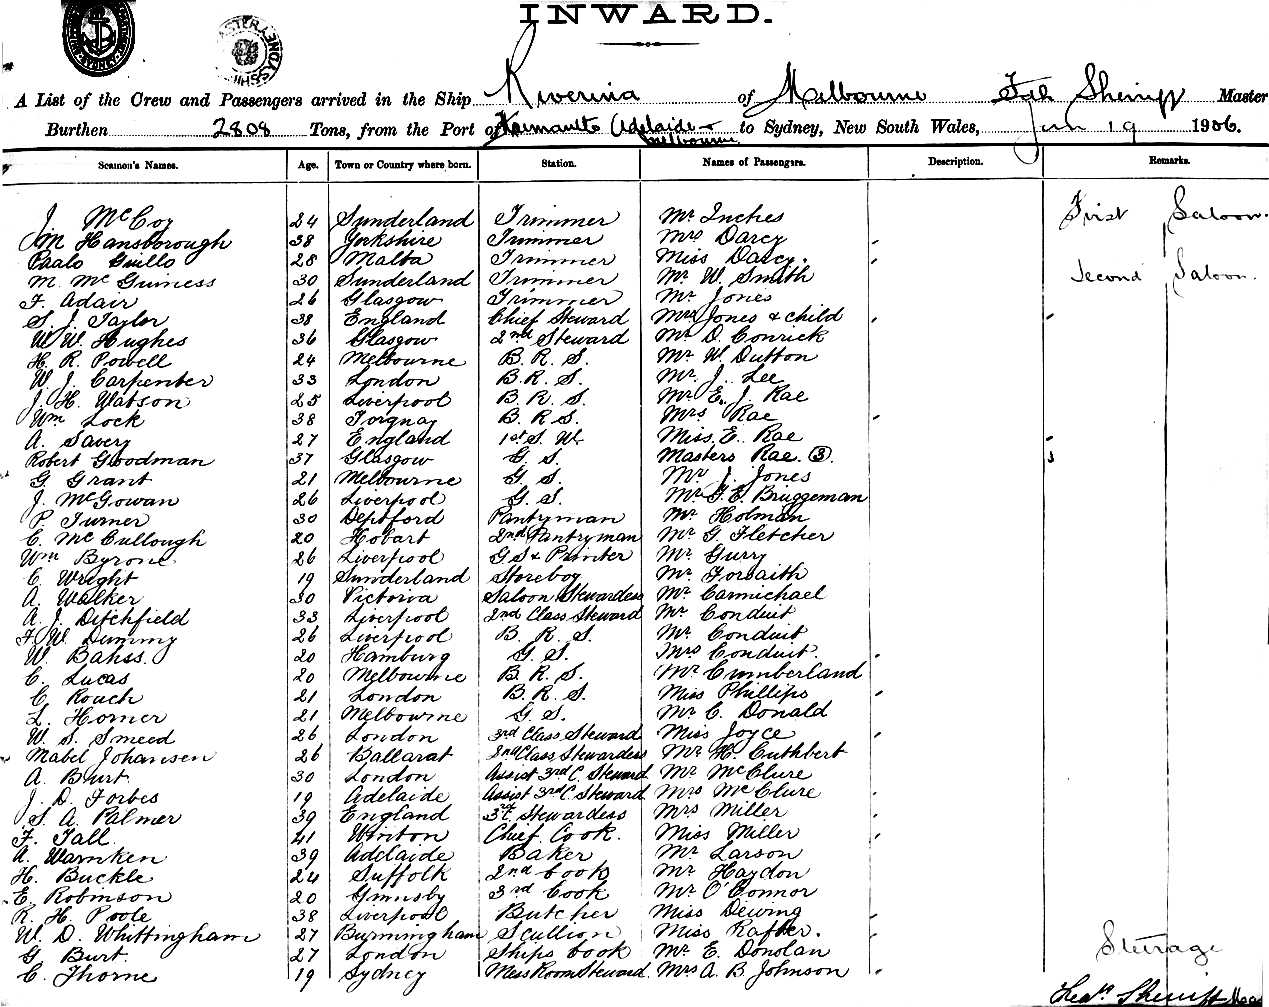 INWARD.
A List of the Crew and Passengers arrived in the Ship Riverina of Melbourne Master
Burthen 2808 Tons, from the Port of Adelaide & Melbourne to Sydney, New South Wales, Jun 19 1906.
Seamen's Names. Age. Town or Country where born. Station. Names of Passengers. Description. Remarks.
J. McCoy 24 Sunderland Trimmer Mr Inches First Saloon.
M Hansborough 38 Yorkshire Trimmer Mrs Darcy
Paalo Guillo 28 Malta Trimmer Miss Darcy.
M. McGuiness 30 Sunderland Trimmer Mr W. Smith Second Saloon.
F. Adair 26 Glasgow Trimmer Mr Jones
S. J. Taylor 38 England Chief Steward Mrs Jones & child
W. W. Hughes 36 Glasgow 2nd Steward Mr D. Conrick
H. R. Powell 24 Melbourne B. R. S. Mr W. Dutton
W. J. Carpenter 33 London B. R. S. Mr J. Lee
J. H. Watson 25 Liverpool B R. S. Mr E. J. Rae
Wm Lock 38 Torquay B. R S. Mrs Rae
A. Savery 27 England 1st S. W. Miss. E. Rae
Robert Goodman 37 Glasgow G. S. Masters Rae. (3).
G Grant 21 Melbourne G. S. Mr J. Jones
J. McGowan 26 Liverpool G. S. Mr G. E. Bruggeman
P Turner 30 Deptford Pantryman Mr Holman
C. McCullough 20 Hobart 2nd Pantryman Mr G. Fletcher
Wm Byrone 26 Liverpool G S & Printer Mr Gurry
C Wright 19 Sunderland Storeboy Mr Forsaith
A. Walker 30 Victoria Saloon Stewardess Mr Carmichael
A. J. Ditchfield 33 Liverpool 2nd Class Steward Mr Conduit
F. W. Dummy 26 Liverpool B. R. S. Mr Conduit
W. Bahss. 20 Hamburg G. S. Mrs Conduit.
C. Lucas 20 Melbourne B. R. S. Mr Cumberland
C Roach 21 London B. R. S. Miss Phillips
L. Horner 21 Melbourne G. S. Mr C. Donald
W. S. Smeed 26 London 3rd Class Steward Miss Joyce
Mabel Johansen 26 Ballarat 2nd Class Stewardess Mr H. Cuthbert
A. Burt. 30 London Assist 3rd C. Steward Mr McClure
J. D. Forbes 19 Adelaide Assist 3rd C. Steward Mrs McClure
S. A. Palmer 39 England Stewardess Mrs Miller
F. Tall 41 Winton Chief Cook. Miss Miller
A. Warnken 39 Adelaide Baker Mr Larson
H. Buckle 24 Suffolk 2nd Cook Mr Haydon
E. Robinson 20 Grimsby 3rd Cook Mr O'Connor
R. H. Poole 38 Liverpool Butcher Miss Dewing
W. D. Whittingham 27 Burmingham Scullion Miss Rafter.
G. Burt. 27 London Ships Cook Mr E. Donolan Steerage
C. Thorne 19 Sydney Mess Room Steward Mrs A. B Johnson